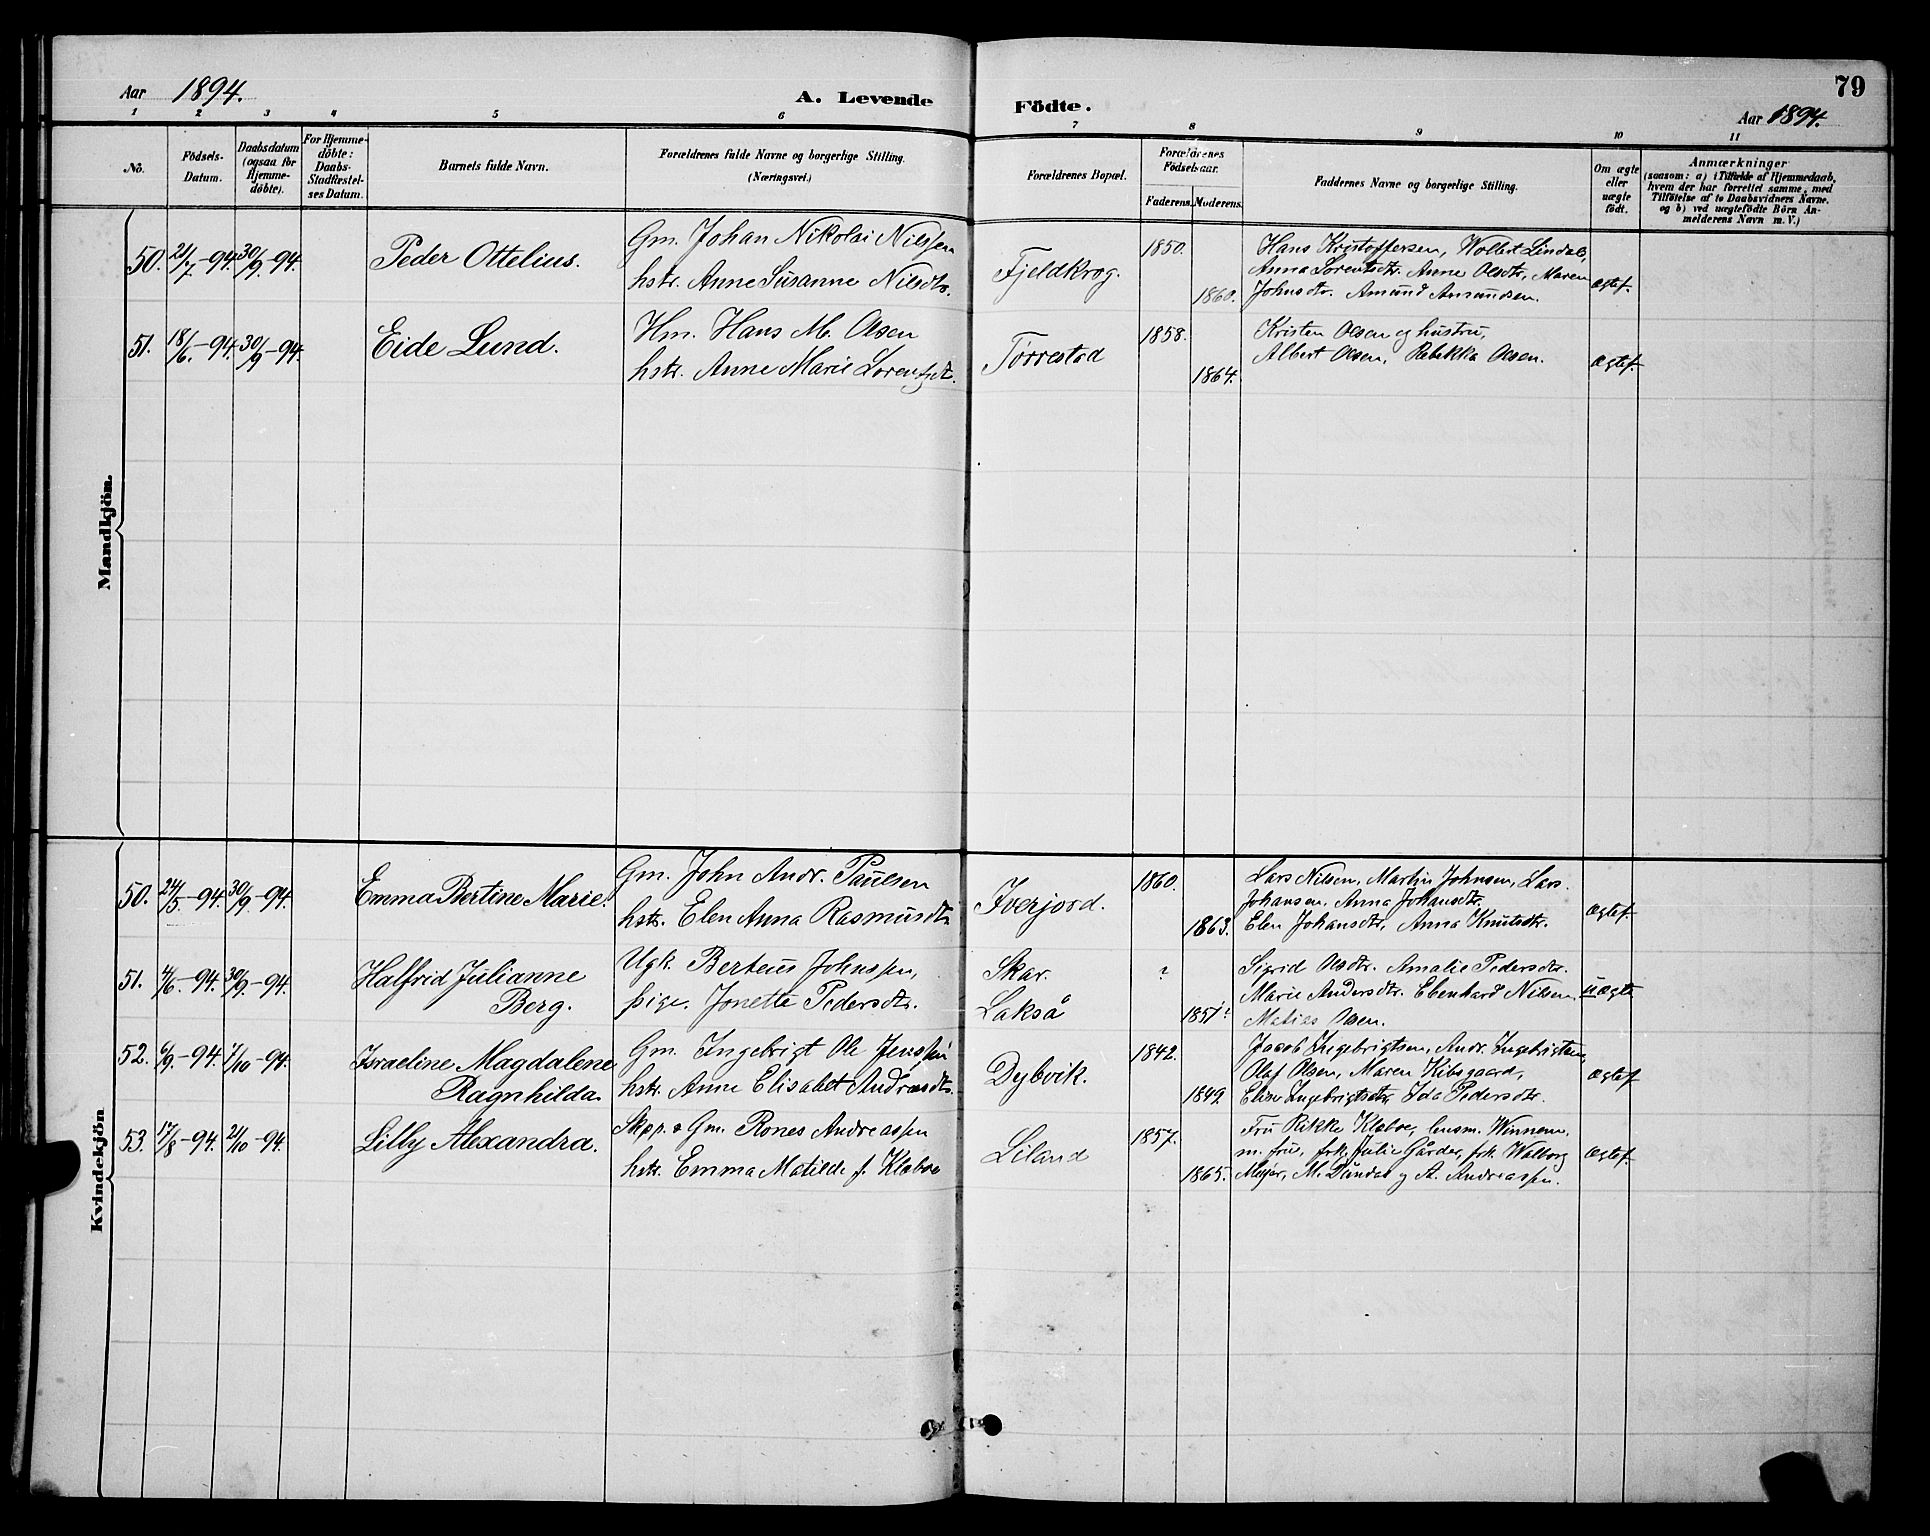 79
Aar 1894.
A. Levende
Födte.
Aar 1894.
1 2 3 4 5 6 7 8 9 10 11
No.
Födsels-
Datum.
Daabsdatum
(ogsaa for
Hjemme-
döbte).
For Hjemme-
döbte:
Daabs-
Stadfæstel-
ses Datum.
Barnets fulde Navn.
Forældrenes fulde Navne og borgerlige Stilling.
(Næringsvei.)
Forældrenes Bopæl.
Forældrenes
Födselsaar.
Faderens. Moderens.
Faddernes Navne og borgerlige Stilling.
Om ægte
eller
uægte
født.
Anmærkninger
(saasom: a) i Tilfælde af Hjemmedaab,
hvem der har forrettet samme, med
Tilföielse af to Daabsvidners Navne.
og b) ved uægtefödte Börn An-
melderens Navn m. V.)
Mandkjön.
50. 21/7-94. 30/9-94. Peder Ottelius.
Gm. Johan Nikolai Nilssen
hstr. Anne Susanne Nilsdtr.
Fjeldkrog.
1850.
1860.
Hans Kristoffersen, Wolert Lindal,
Anna Lorentsdtr. Anne Olsdtr, Maren
Johnsdtr. Amund Amundsen.
ægtef.
51. 18/6-94. 30/9-94. Eide Lund.
Hm. Hans M. Olsen
hstr. Anne Marie Lorentzdt.
Tørrestad
1858.
1864.
Kristen Olsen og hustru,
Albert Olsen, Rebekka Olsen.
ægtef.
Kvindekjön
50. 24/5-94. 30/9-94. Emma Bertine Marie.
Gm. John Andr. Paulsen
hstr. Elen Anna Rasmusdtr
Iverjord.
1860.
1863.
Lars Nilsen, Martin Johnsen, Lars
Johansen, Anna Johansdtr.
Elen Johansdtr, Anna Knutsdtr.
ægtef.
51. 4/6-94. 30/9-94. Halfrid Julianne
Berg.
Ugk. Berteus Johnssen,
pige. Jonette Pedersdtr.
Skar.
Lakså
?
1851?
Sigrid Olsdtr. Amalie Pedersdtr.
Marie Andersdtr. Ebenhard Nilsen,
Matias Olsen.
uægte
52. 6/9-94. 7/10-94. Israeline Magdalene
Ragnhilda
Gm. Ingebrigt Ole Jenssen
hstr. Anne Elisabet Andreasdtr.
Dybvik.
1842.
1849.
Jacob Ingebrigtsen, Andr. Ingebrigtsen,
Olaf Olsen, Maren Kibsgaard,
Elen Ingebrigtsdtr, Ida Pedersdtr.
ægtef.
53. 17/8-94. 21/10-94. Lilly Alexandra.
Skpp. & Gm. Rones Andreassen
hstr. Emma Matilde f. Klæboe
Liland
1857.
1865.
Fru Rikke Klæboe, lensm. Winnem
m. frue, frk. Julie Gårder, frk. Walborg
Meyer, M. Dundas og A. Andreassen.
ægtef.